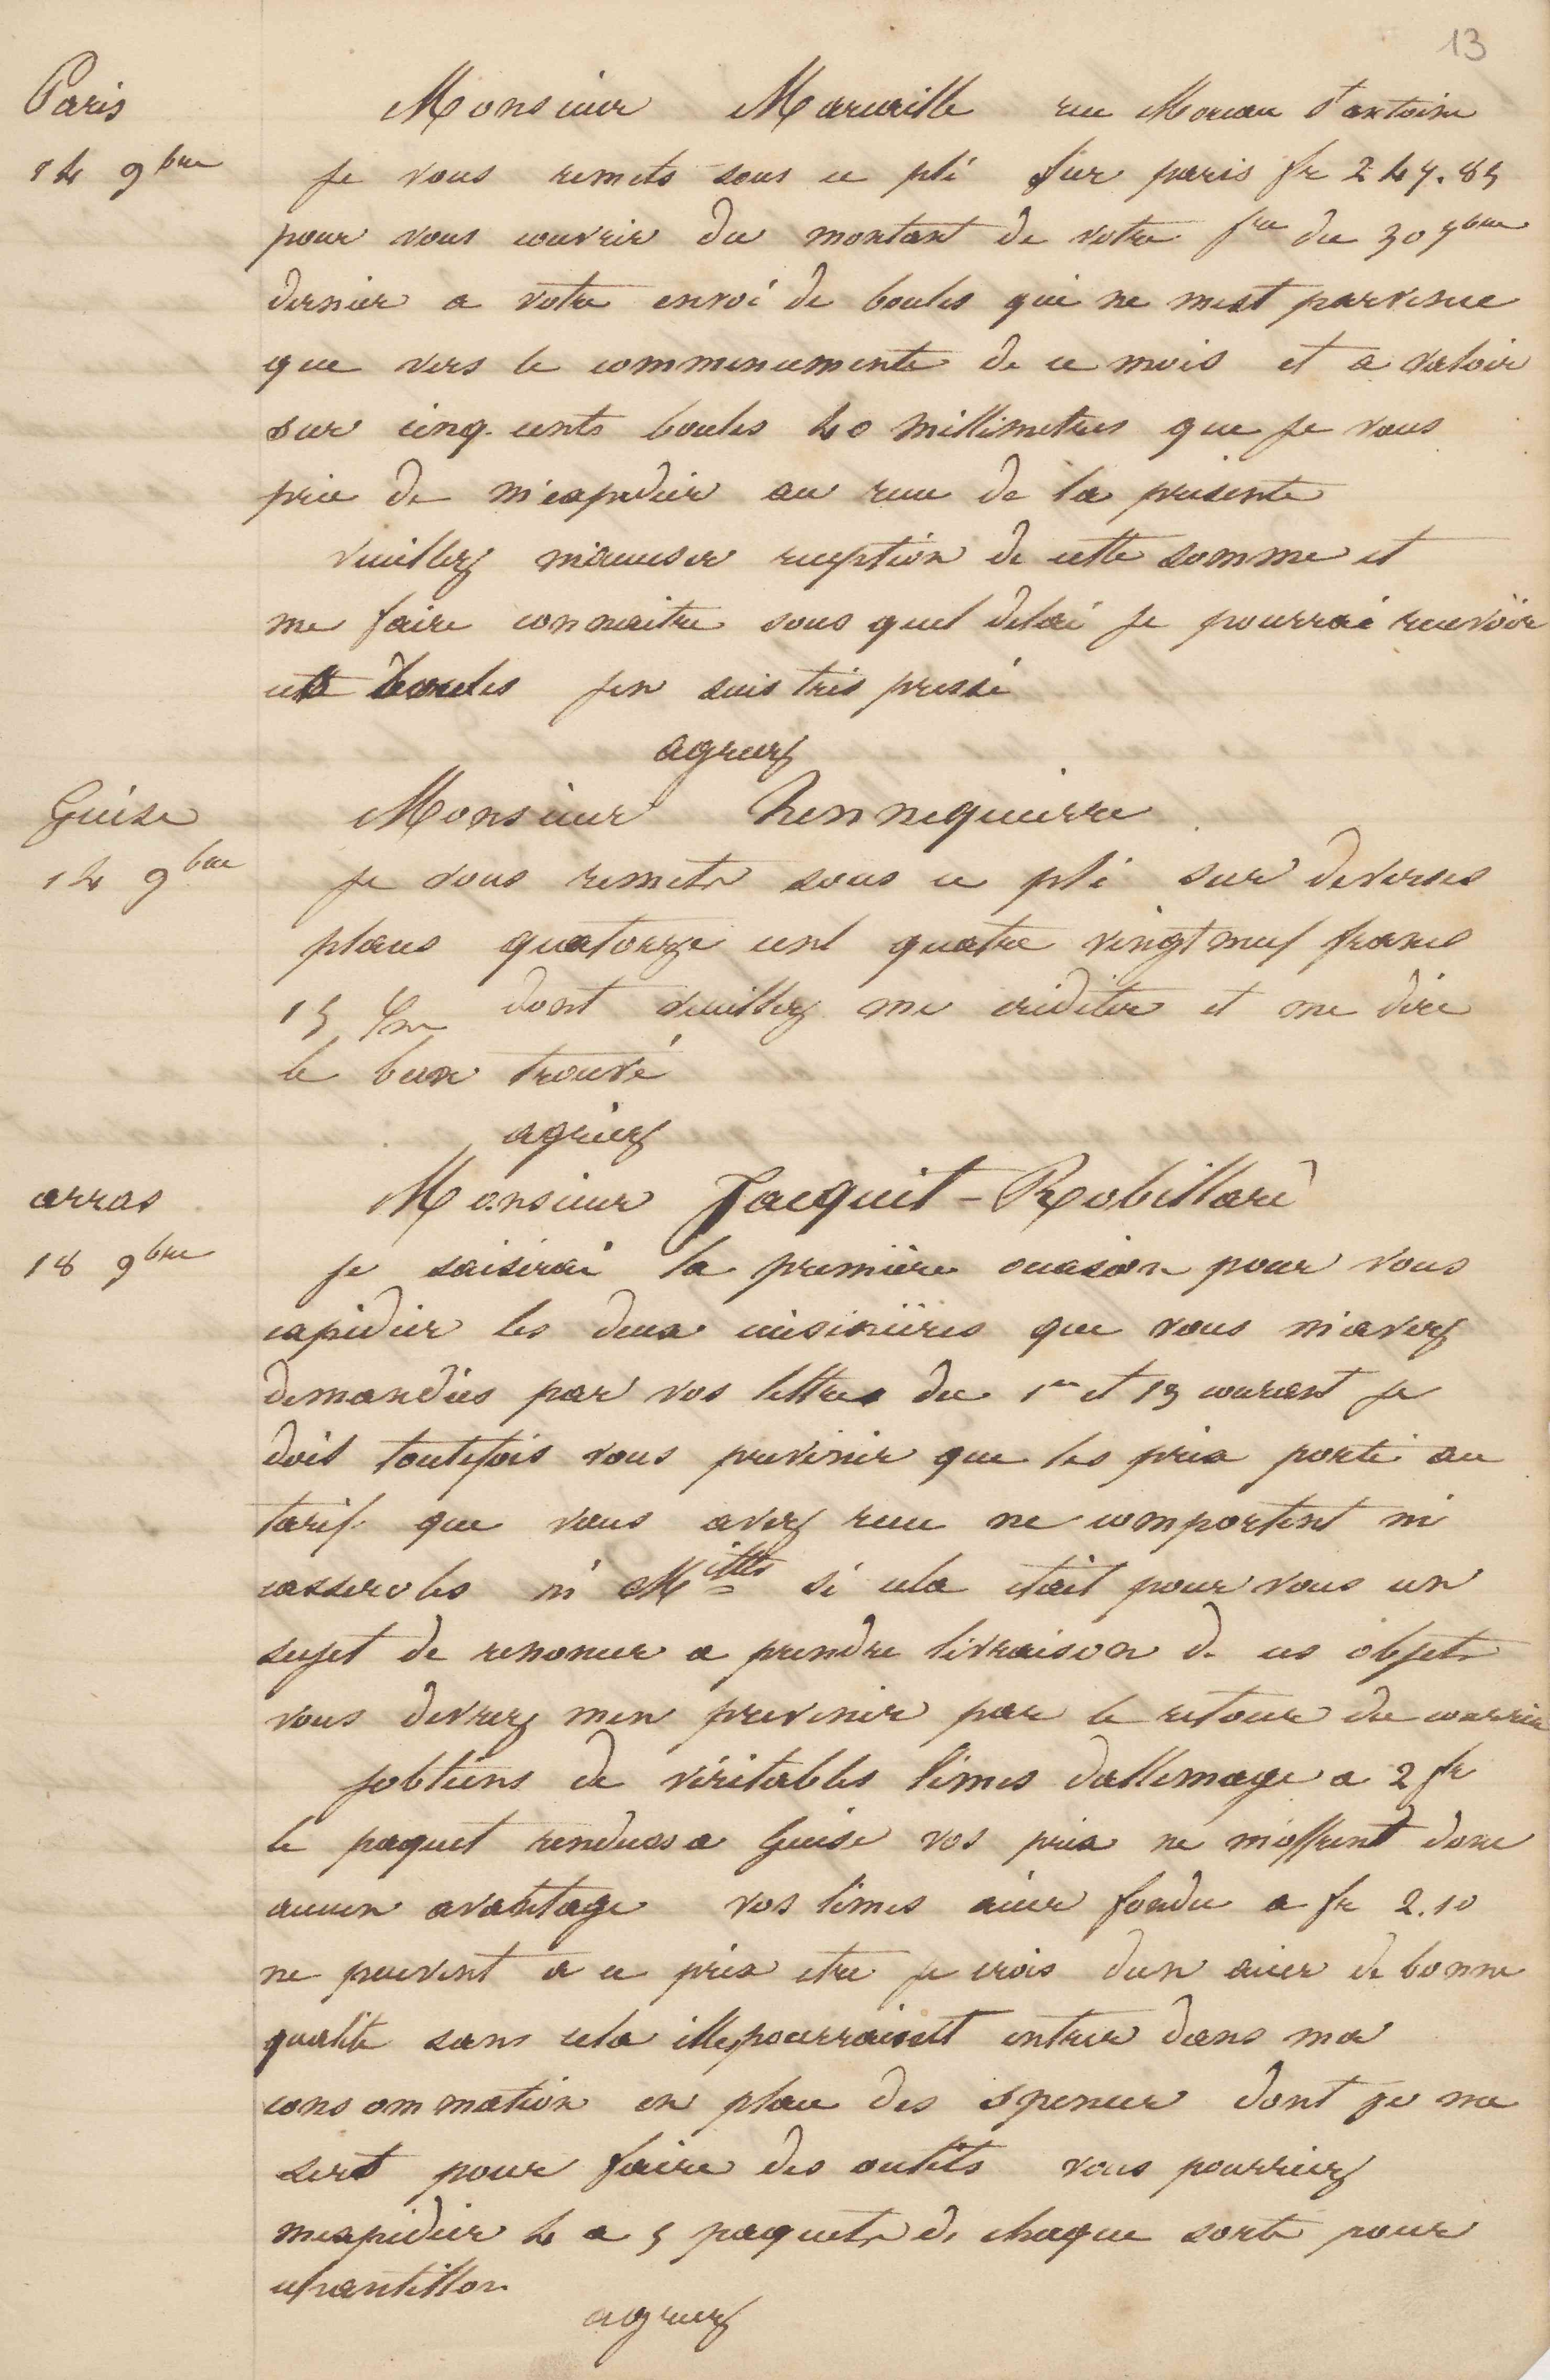 13
Paris
Monsieur Mareville rue Moreau St antoine
14 9bre
je vous remets sous ce pli sur paris fr 247.85
pour vous couvrir du montant de votre fre du 30 7bre
dernier a votre envoi de boules qui ne mest parvenue
que vers le commencements de ce mois et a valoir
sur cinq cents boules 40 millimetres que je vous
prie de m'expedier au recu de la presente
veuillez m'accuser reception de cette somme et
me faire connaitre sous quel delai je pourrai recevoir
boules jen suis très pressé
agreez
Guise
Monsieur hennequierre
14 9bre
je vous remets sous ce pli sur diverses
places quatorze cent quatre vingt neuf francs
15 cm dont veuillez me créditer et me dire
le bien trouvé
agréez
arras
Monsieur Jacquet-Robillard
18 9bre
je saisirai la première occasion pour vous
expédier les deux cuisinières que vous m'avez
demandées par vos lettres du 1er et 13 courant je
dois toutefois vous prevenir que les prix porté au
tarif que vous avez recu ne comportent ni
casseroles ni Mittes si cela était pour vous un
sujet de renoncer a prendre livraison de ces objets
vous devrez men prevenir par le retour du courrier
jobtiens de véritables limes dallemage a 2 fr
le paquet rendues a Guise vos prix ne m'offrent donc
aucun avantage vos limes acier fondu a fr 2.10
ne peuvent a ce prix etre je crois dun acier de bonne
qualité sans cela elles pourraient entrer dans ma
consommation en place des spencer dont je me
sert pour faire des outils vous pourriez
mexpédier 4 a 5 paquets de chaque sorte pour
echantillon
agreez